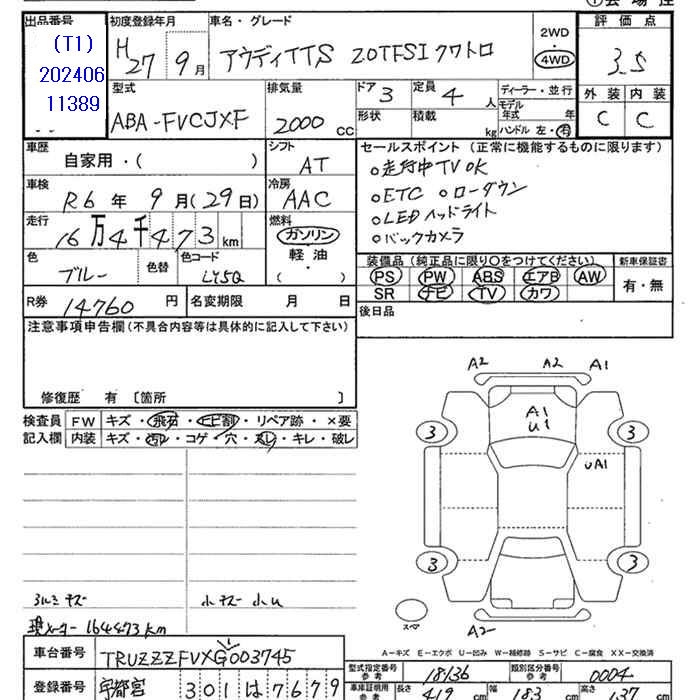 出品番号
(T1)
202406
11389
初度登録年月
H27 9月
車名・グレード
アウディTTS 2.0TFSIクワトロ
2WD
4WD
評価点
3.5
外装 内装
C C
型式
ABA-FVCJXF
排気量
2000 CC
ドア 3
定員 4 人
形状
積載 kg
ディーラー・並行
モデル年式 年
ハンドル 左・右
車歴
自家用・( )
シフト
AT
車検
R6年 9月(29日)
冷房
AAC
走行
16万4千473km
燃料
ガソリン
軽油
( )
色
ブルー
色替
色コード
LY5Q
セールスポイント(正常に機能するものに限ります)
○走行中TV OK
○ETC ○ローダウン
○LEDヘッドライト
○バックカメラ
装備品(純正品に限り○をつけてください)
PS PW ABS エアB AW
SR ナビ TV カワ
新車保証書
有・無
R券 14760円
名変期限 月 日
後日品
注意事項申告欄(不具合内容等は具体的に記入して下さい)
修復歴 有 〔箇所 〕
検査員記入欄
FW キズ・飛石・ヒビ割・リペア跡・×要
内装 キズ・汚レ・コゲ・穴・スレ・キレ・破レ
A2 A2 A1
A1
U1
UA1
3 3
3 3
スペア
A2
アルミキズ 小キズ 小U
現メーター 164473km
A-キズ E-エクボ U-凹み W-補修跡 S-サビ C-腐食 XX-交換済
車台番号
TRUZZZFVXG003745
登録番号
宇都宮 301 は 7679
型式指定番号 参考 18136
類別区分番号 参考 0004
車庫証明用 参考
長さ 419 cm
幅 183 cm
高さ 137 cm